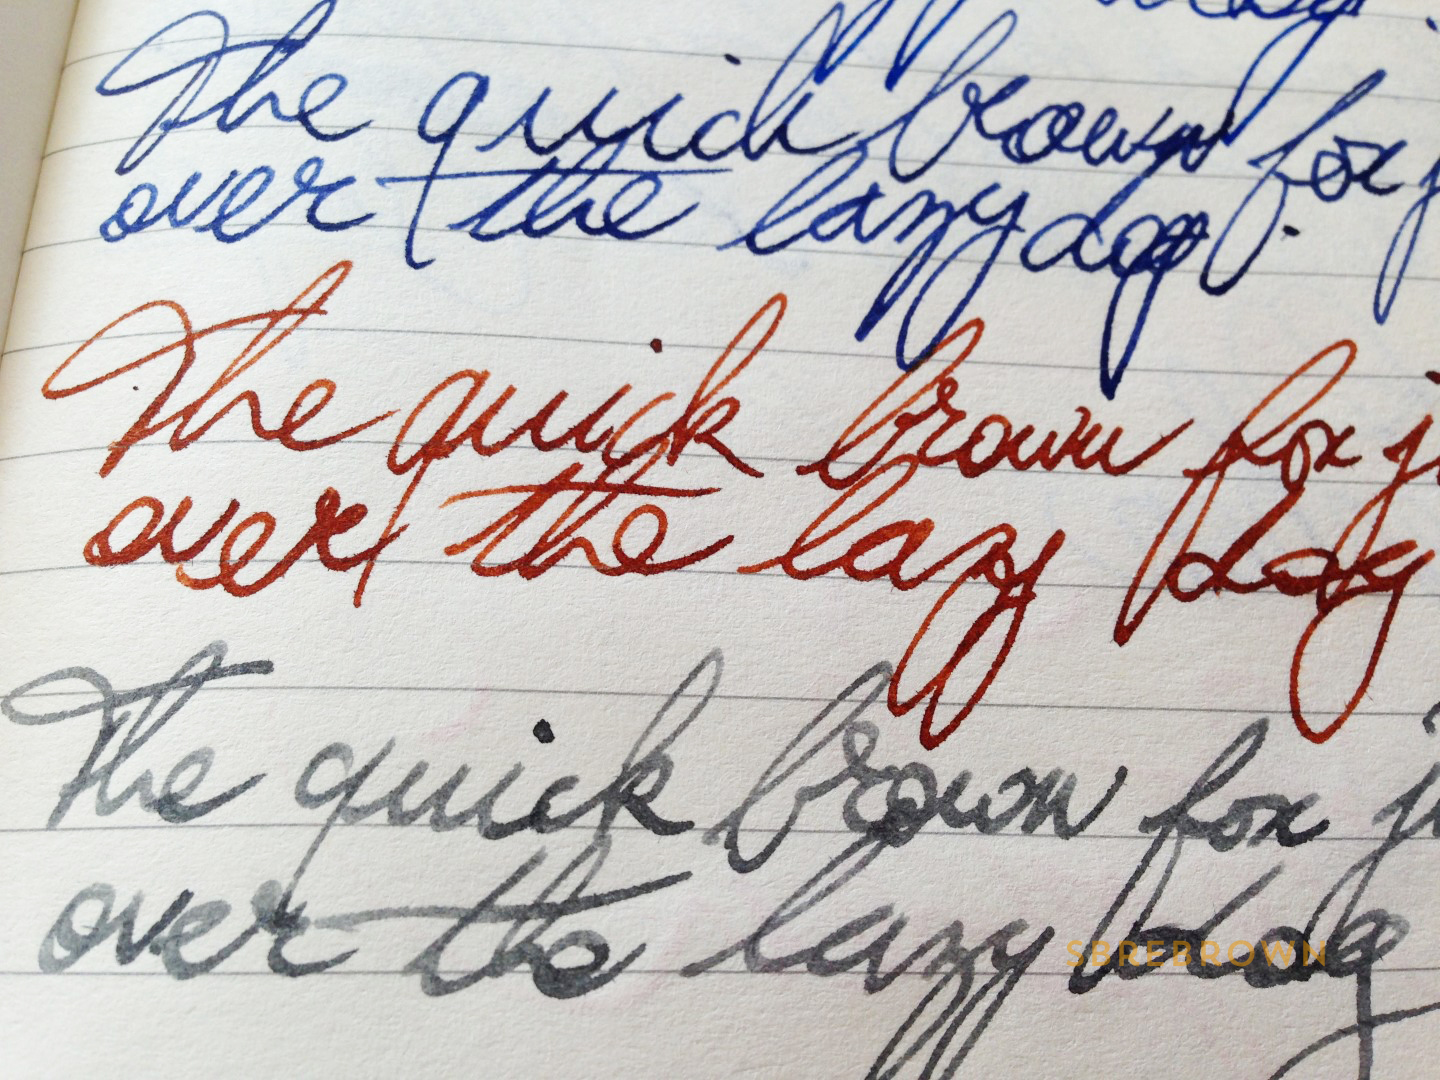 The quick brown fox j
over the lazy dog.
The quick brown fox j
over the lazy dog
The quick brown fox j
over the lazy dog
SBREBROWN